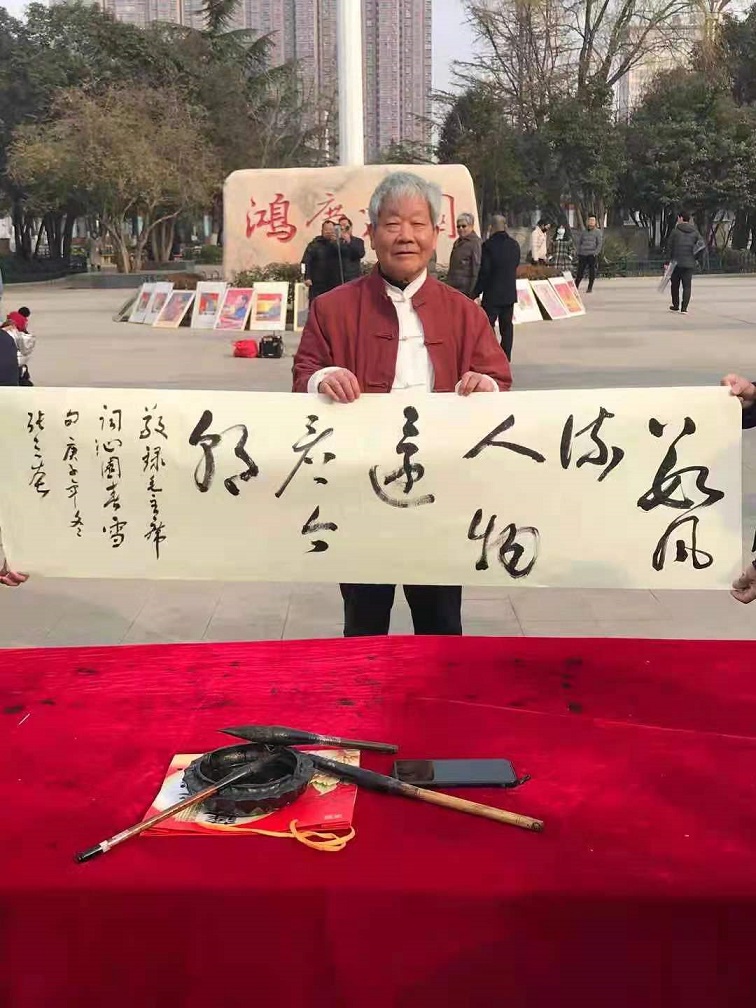 鸿
数风
流
人物
還
看今
朝
敬録毛主席
词沁園春雪
句庚子年冬
张